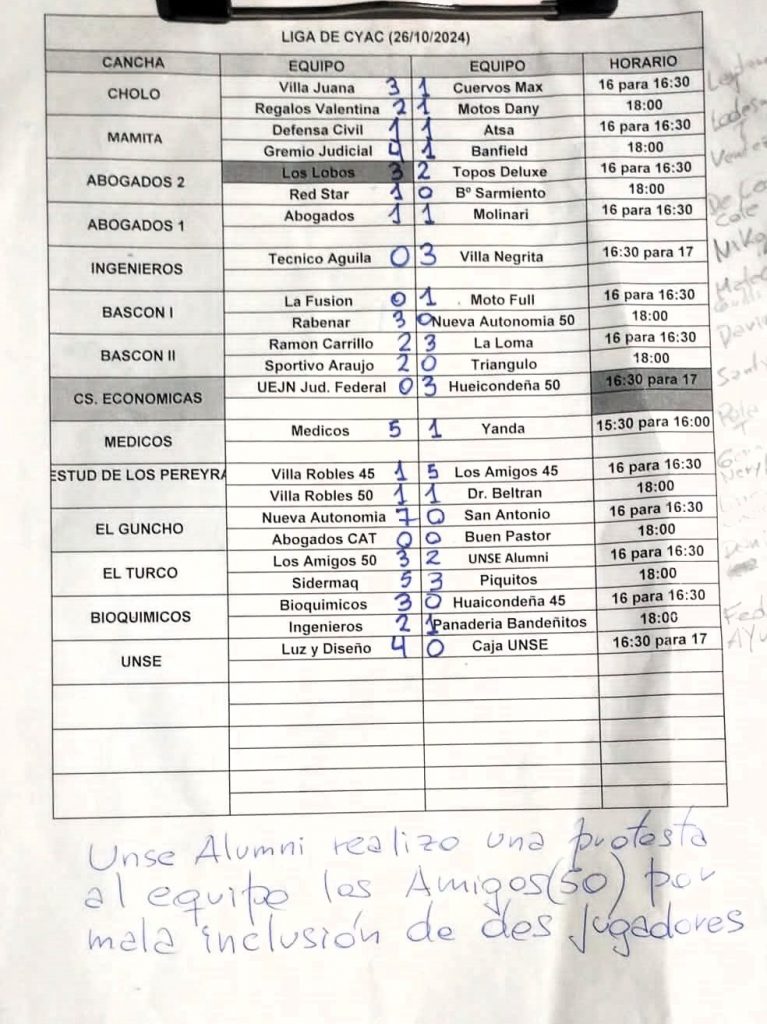 LIGA DE CYAC (26/10/2024)
CANCHA EQUIPO EQUIPO HORARIO
CHOLO
Villa Juana 3 1 Cuervos Max 16 para 16:30
Regalos Valentina 2 1 Motos Dany 18:00
MAMITA
Defensa Civil 1 1 Atsa 16 para 16:30
Gremio Judicial 4 1 Banfield 18:00
ABOGADOS 2
Los Lobos 3 2 Topos Deluxe 16 para 16:30
Red Star 1 0 Bº Sarmiento 18:00
ABOGADOS 1
Abogados 1 1 Molinari 16 para 16:30
INGENIEROS
Tecnico Aguila 0 3 Villa Negrita 16:30 para 17
BASCON I
La Fusion 0 1 Moto Full 16 para 16:30
Rabenar 3 0 Nueva Autonomia 50 18:00
BASCON II
Ramon Carrillo 2 3 La Loma 16 para 16:30
Sportivo Araujo 2 0 Triangulo 18:00
CS. ECONOMICAS
UEJN Jud. Federal 0 3 Hueicondeña 50 16:30 para 17
MEDICOS
Medicos 5 1 Yanda 15:30 para 16:00
ESTUD DE LOS PEREYRA
Villa Robles 45 1 5 Los Amigos 45 16 para 16:30
Villa Robles 50 1 1 Dr. Beltran 18:00
EL GUNCHO
Nueva Autonomia 7 0 San Antonio 16 para 16:30
Abogados CAT 0 0 Buen Pastor 18:00
EL TURCO
Los Amigos 50 3 2 UNSE Alumni 16 para 16:30
Sidermaq 5 3 Piquitos 18:00
BIOQUIMICOS
Bioquimicos 3 0 Huaicondeña 45 16 para 16:30
Ingenieros 2 1 Panaderia Bandeñitos 18:00
UNSE
Luz y Diseño 4 0 Caja UNSE 16:30 para 17
Unse Alumni realizo una protesta
al equipo los Amigos (50) por
mala inclusión de des jugadores